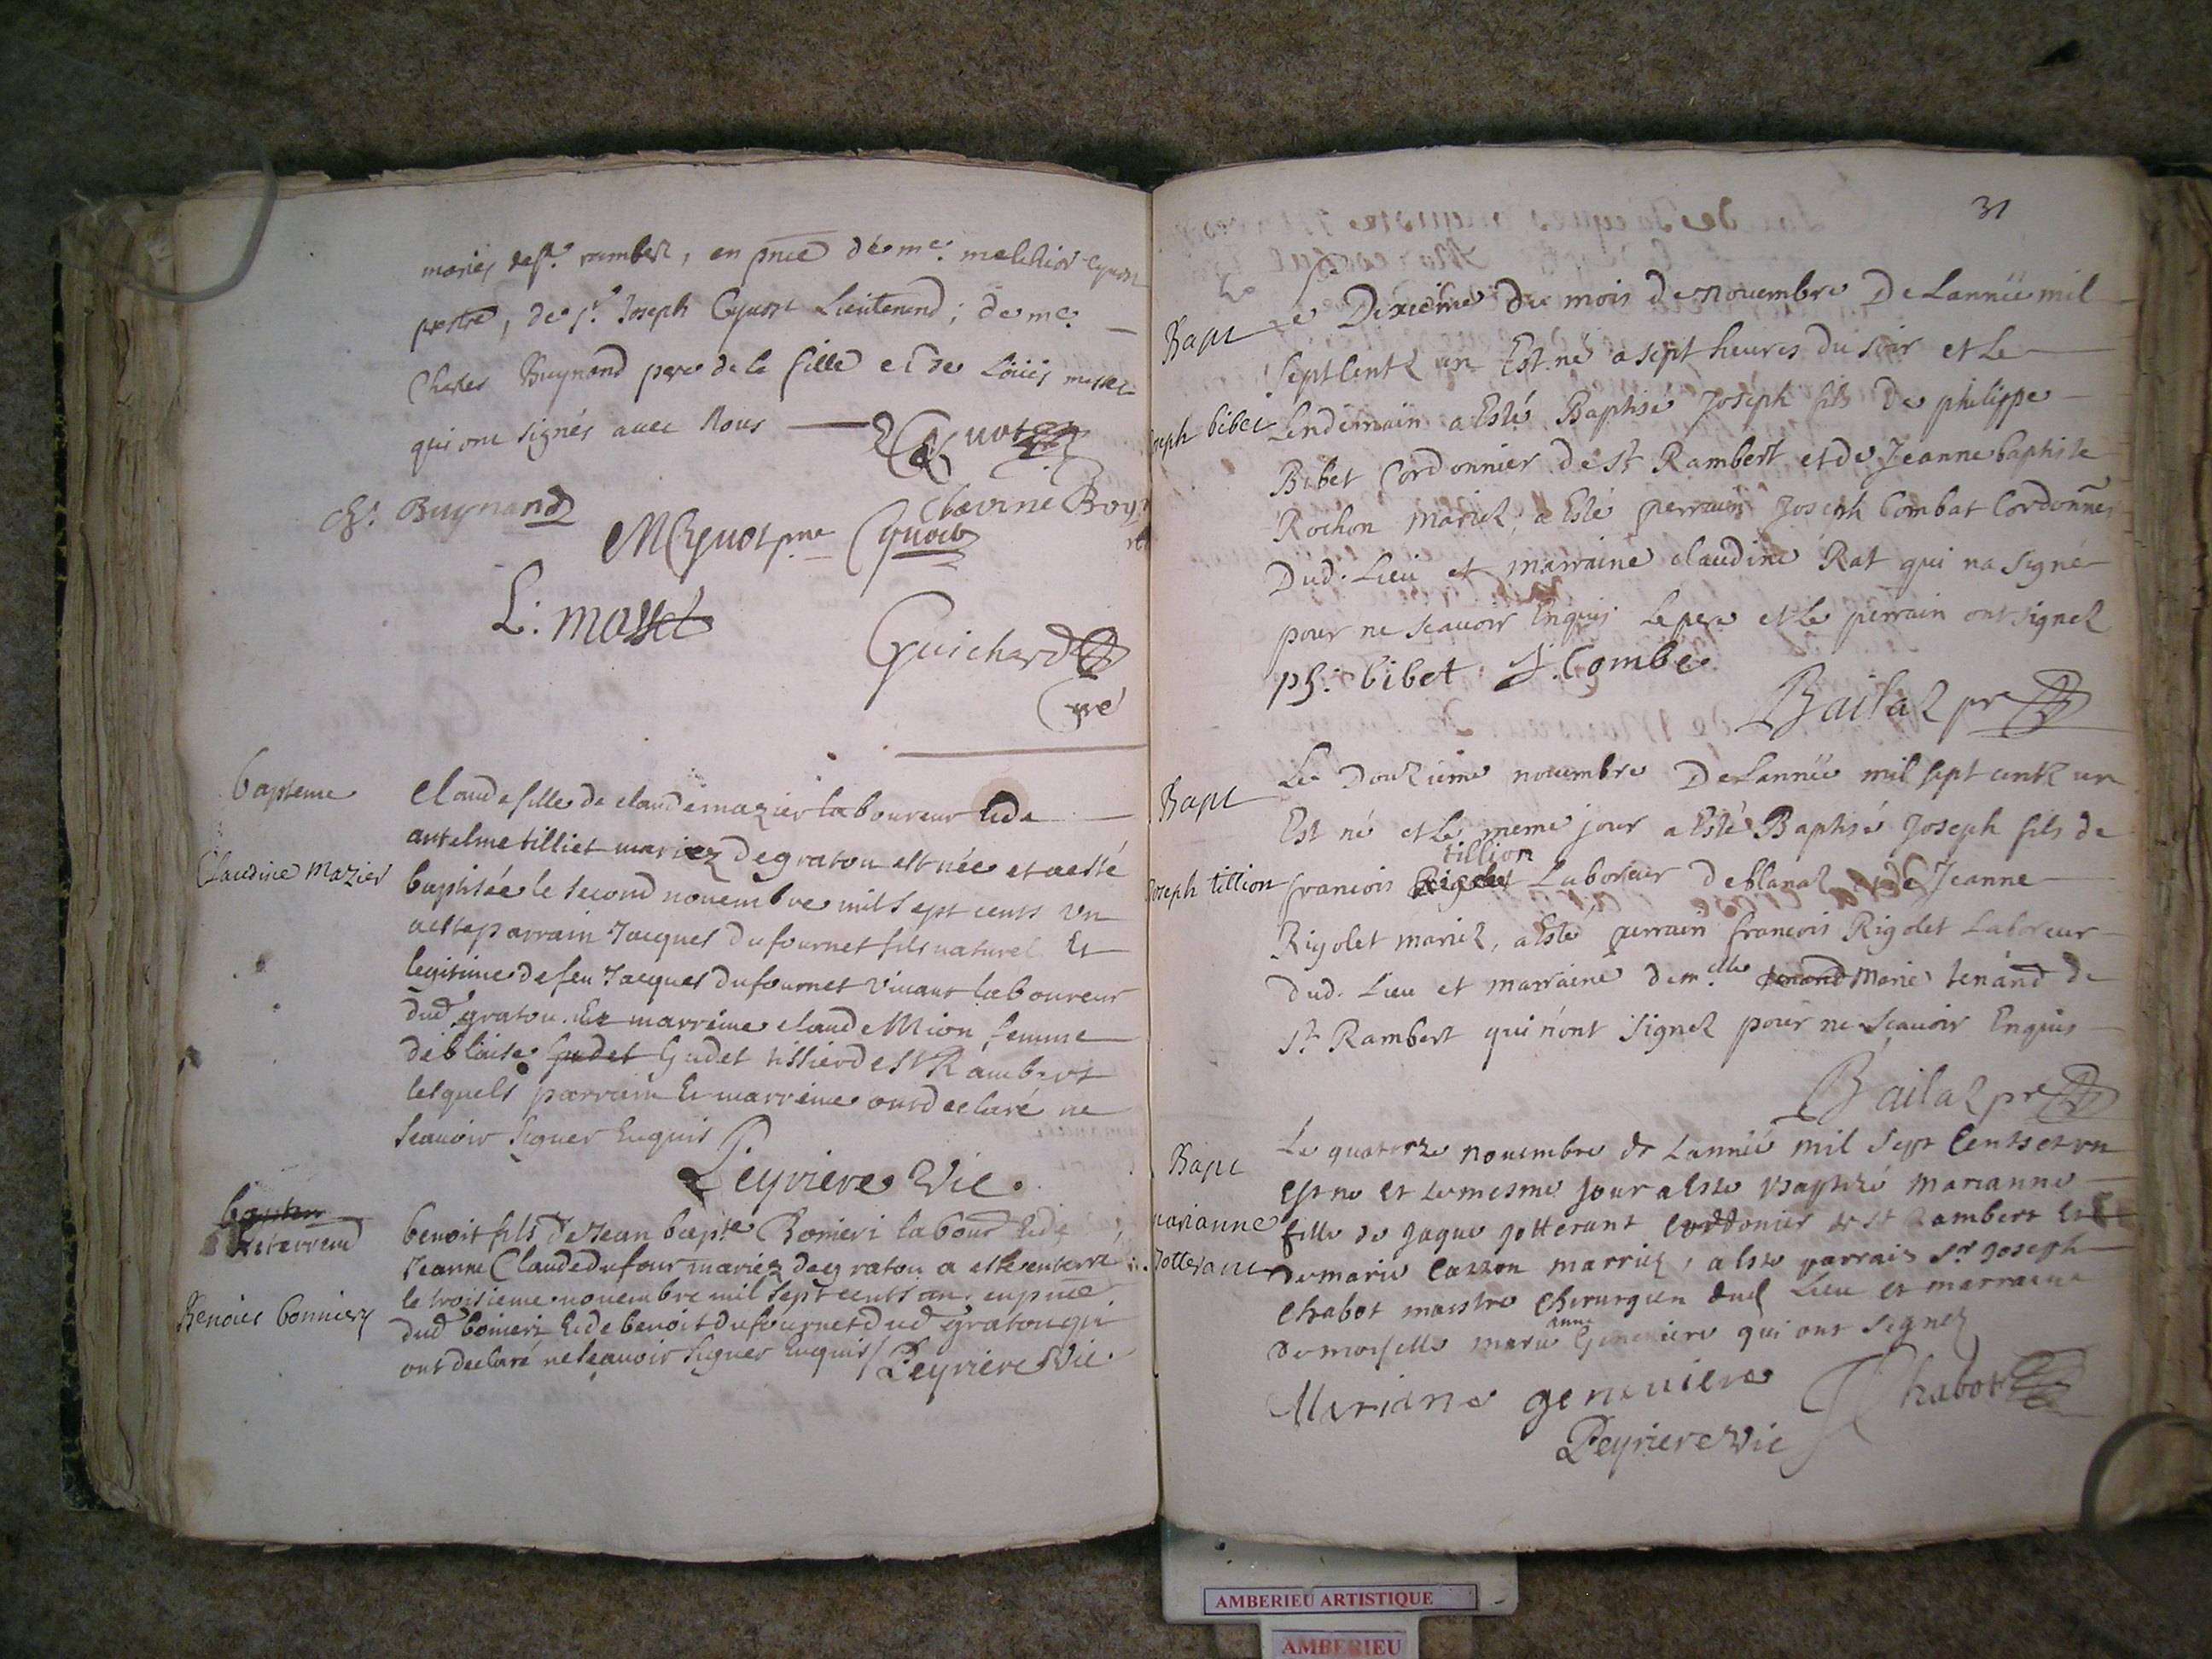 mariés de st. rambert, en pnce de me. melchior Cyuot
prestre, de sr. Joseph Cyuot Lieutenend; de me.
Charles Buynand pere de la fille et de Loüis mosset
qui ont signés avec Nous
Ch. Buynand
MCyuot pre Cyuot
L: mosset
Guichard
Curé
bapteme
Claudine Mazier
Claude fille de claude mazier laboureur Et de
antelme tilliet mariez de gratou est née et a esté
baptisée le second nouembre mil sept cents vn
a esté parrain Jacques dufournet fils naturel Et
legitime de feu Jacques dufournet viuant laboureur
dud gratou. Et marreine claude Mion femme
de blaise Gudet Gudet tissier de st Rambert
lesquels parrain Et marreine ont declaré ne
scauoir signer Enquis
Peyriere Vic.
baptem
Enterremd
Benoict bonnierz
benoit fils de Jean bapte. Bomieri labour Et de
Jeanne Claude dufour mariez de gratou a esté enterré
le troisieme nouembre mil sept cents un. en pnce
dud bomieri Et de benoit dufournet dud gratou qui
ont declaré ne scauoir signer Enquis / Peyriere Vic.
31
Bapt
Joseph bibet
Le Dixiéme du mois de nouembre De Lannée mil
sept centz un Est né a sept heures du soir et Le
Lendemain a Esté Baptisé Joseph fils de philippe
Bibet Cordonnier de st Rambert et de Jeanne baptiste
Rochon mariez, a Esté perrain Joseph Combat Cordonner
Dud. Lieu et marraine claudine Rat qui na signé
pour ne scauoir Enquis Le pere et Le perrain ont signez
ph: bibet J. Combe
Bailat pr
Bapt
Joseph tillion
Le Douziéme nouembre De Lannée mil sept centz un
Est né et Le meme jour a Esté Baptisé Joseph fils de
tillion
francois Rigolet Laboreur de blanaz et de Jeanne
Rigolet mariez, a Esté perrain francois Rigolet Laboreur
dud. Lieu et marraine dem.elle tenand Marie tenand de
st. Rambert qui n'ont signez pour ne scauoir Enquis
Bailat pr
Bapt
marianne
Jotterant
Le quatorze nouembre de Lannée mil sept Cents et vn
est ne et le mesme jour a este Baptizé marianne
fille de Jaque Jotterant Cordonier de st Rambert Et
de marie Cazzon marriez, a este parrais sr Joseph
Chabot maistre Chirurgien dud Lieu et marraine
anne
demoiselle marie Geneuiere qui ont signez
Mariane geneuiere Chabot
Peyriere Vic
AMBERIEU ARTISTIQUE
AMBERIEU